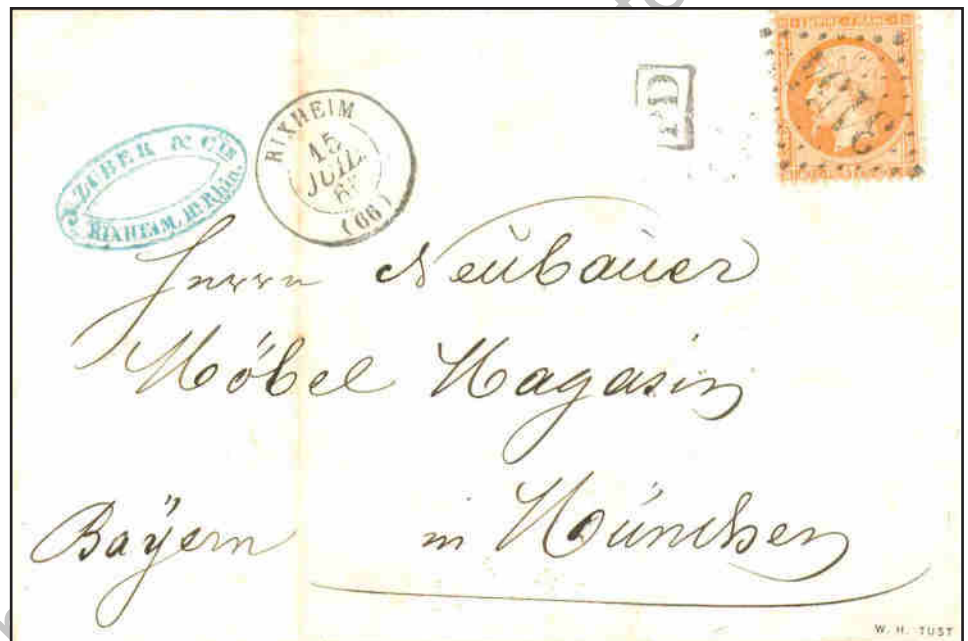 EMPIRE FRANC
PD
J. ZUBER & Cie
RIXHEIM, Ht Rhin.
RIXHEIM
15
JUIL.
(66)
Herrn Neubauer
Möbel Magasin
Bayern in München
W. H. TUST